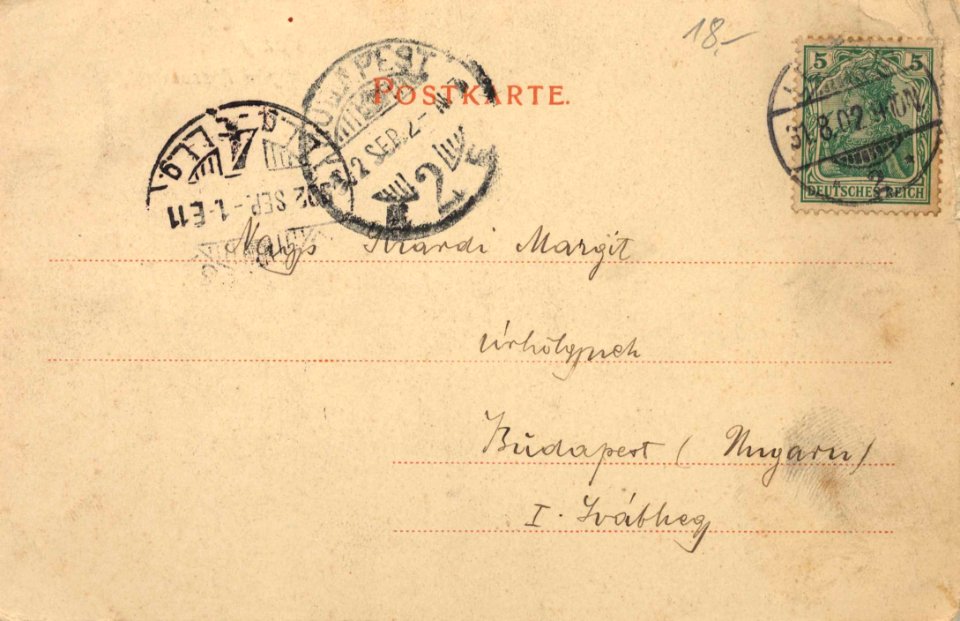 18.-
POSTKARTE.
5 5
DEUTSCHES REICH
31.8.02.
BUDAPEST
902 SEP.-1.-E11
902 SEP. 2-
2
Nagys Szardi Margit
Úrhölgynek
Budapest (Ungarn)
I. Svábheg